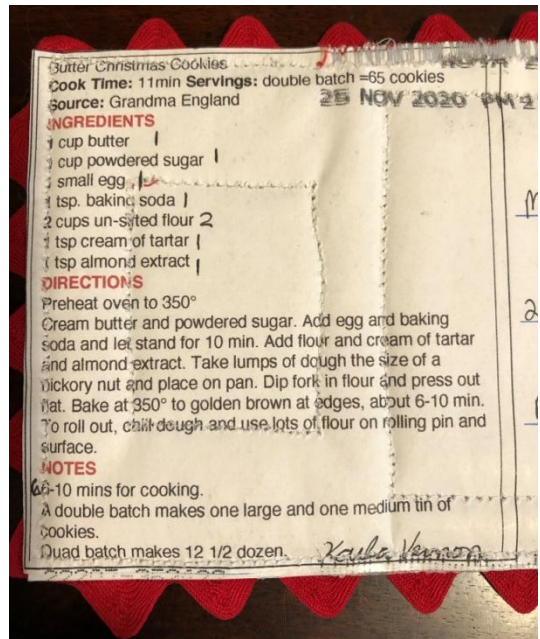 Butter Christmas Cookies
Cook Time: 11min Servings: double batch =65 cookies
Source: Grandma England
25 NOV 2020 PM
INGREDIENTS
1 cup butter 1
1 cup powdered sugar 1
1 small egg 1
1 tsp. baking soda 1
2 cups un-sifted flour 2
1 tsp cream of tartar 1
1 tsp almond extract 1
DIRECTIONS
Preheat oven to 350°
Cream butter and powdered sugar. Add egg and baking
soda and let stand for 10 min. Add flour and cream of tartar
and almond extract. Take lumps of dough the size of a
hickory nut and place on pan. Dip fork in flour and press out
flat. Bake at 350° to golden brown at edges, about 6-10 min.
To roll out, chill dough and use lots of flour on rolling pin and
surface.
NOTES
6-10 mins for cooking.
A double batch makes one large and one medium tin of
cookies.
Quad batch makes 12 1/2 dozen.
Vernon
M
2